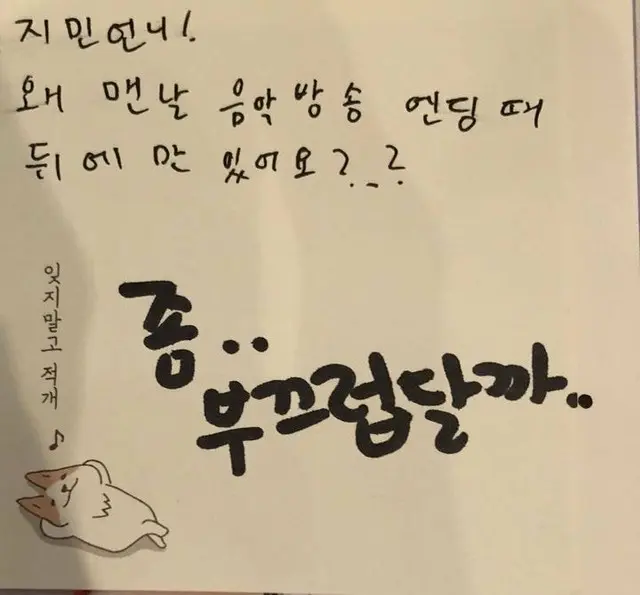 지민언니!
왜 맨날 음악방송 엔딩때
뒤에만 있어요?_?
좀..
부끄럽달까..
잊지말고 적개♪